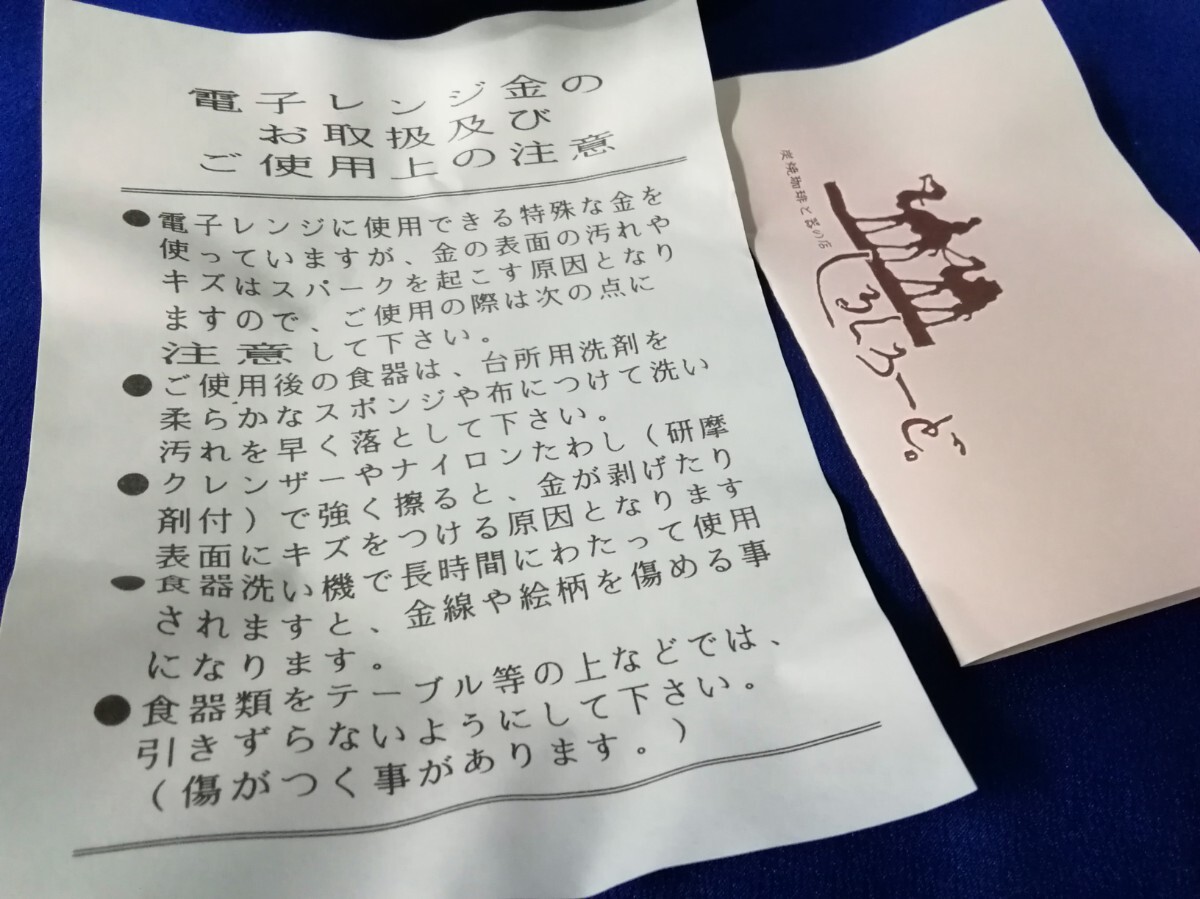 電子レンジ金の
お取扱及び
ご使用上の注意
●電子レンジに使用できる特殊な金を
使っていますが、金の表面の汚れや
キズはスパークを起こす原因となり
ますので、ご使用の際は次の点に
注意して下さい。
●ご使用後の食器は、台所用洗剤を
柔らかなスポンジや布につけて洗い
汚れを早く落として下さい。
●クレンザーやナイロンたわし(研摩
剤付)で強く擦ると、金が剥げたり
表面にキズをつける原因となります
●食器洗い機で長時間にわたって使用
されますと、金線や絵柄を傷める事
になります。
●食器類をテーブル等の上などでは、
引きずらないようにして下さい。
(傷がつく事があります。)
炭焼珈琲と器の店
しるくろーど。